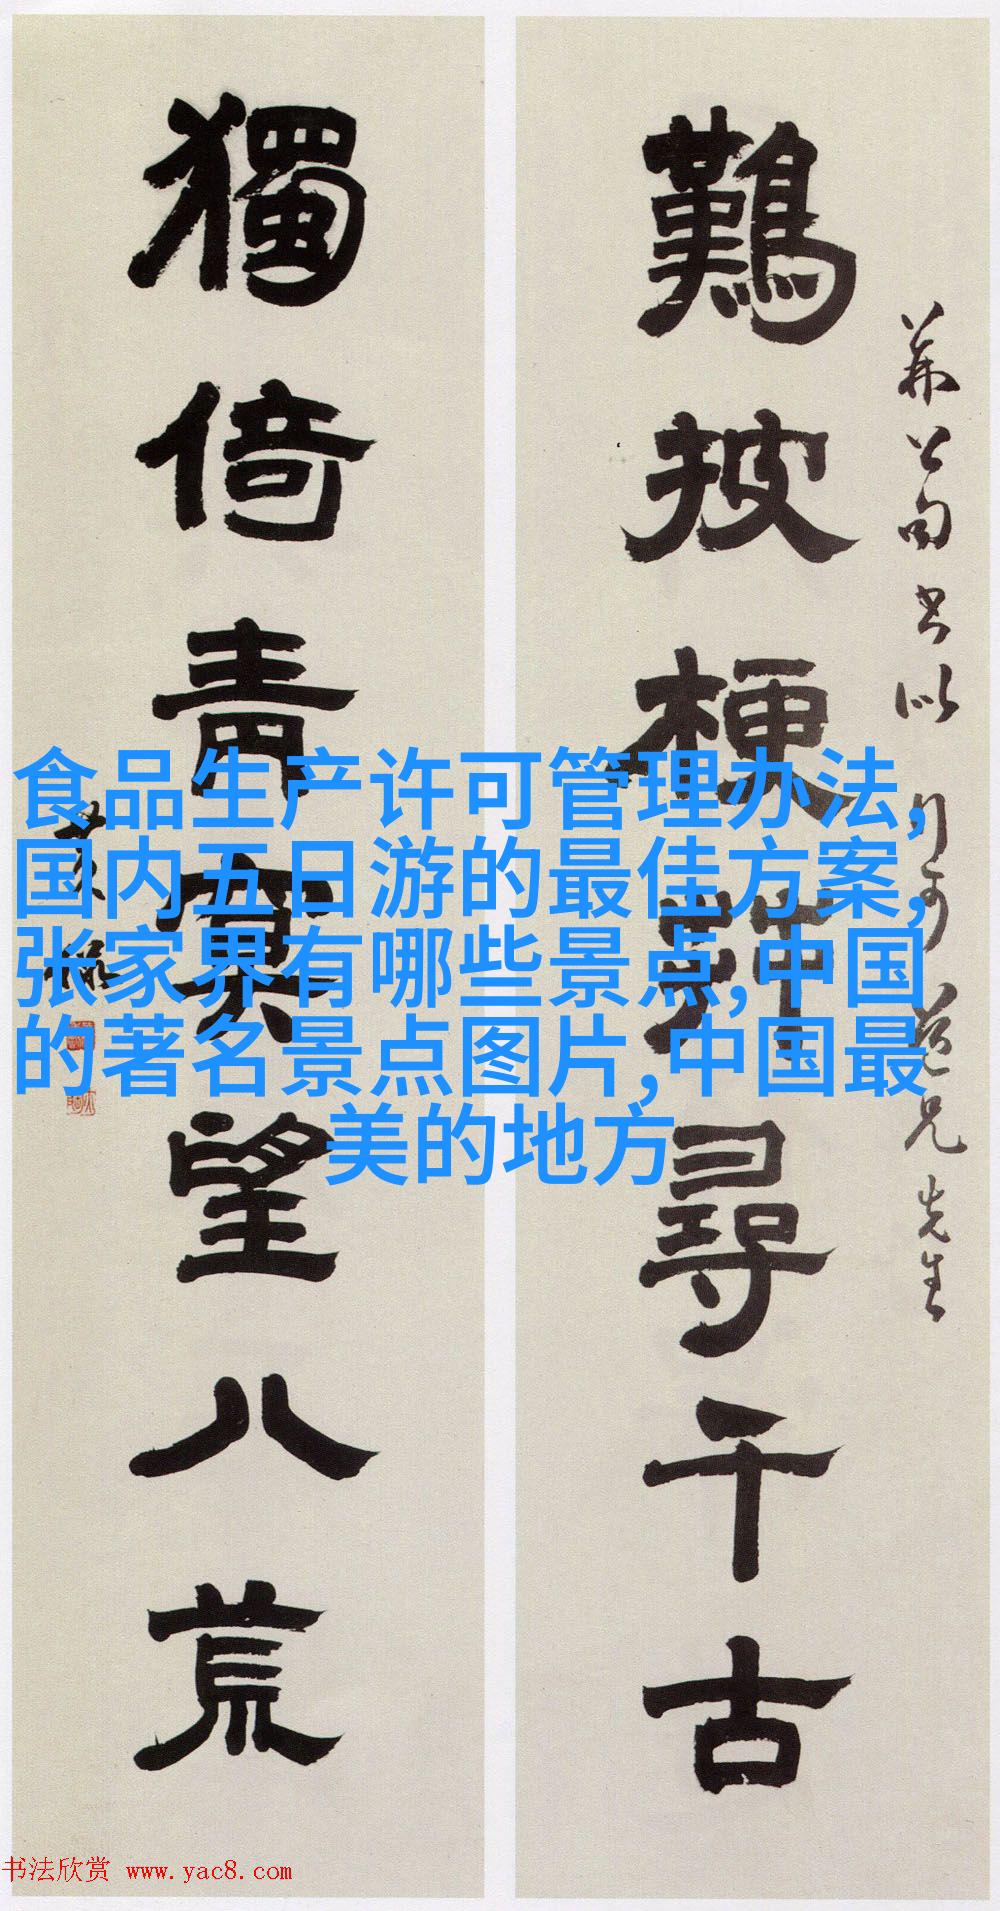 公句書以
兄先生
披梗尋千古
獨倚青望八荒
食品生产许可管理办法,
国内五日游的最佳方案,
张家界有哪些景点,中国
的著名景点图片,中国最
美的地方
书法欣赏 www.yac8.com